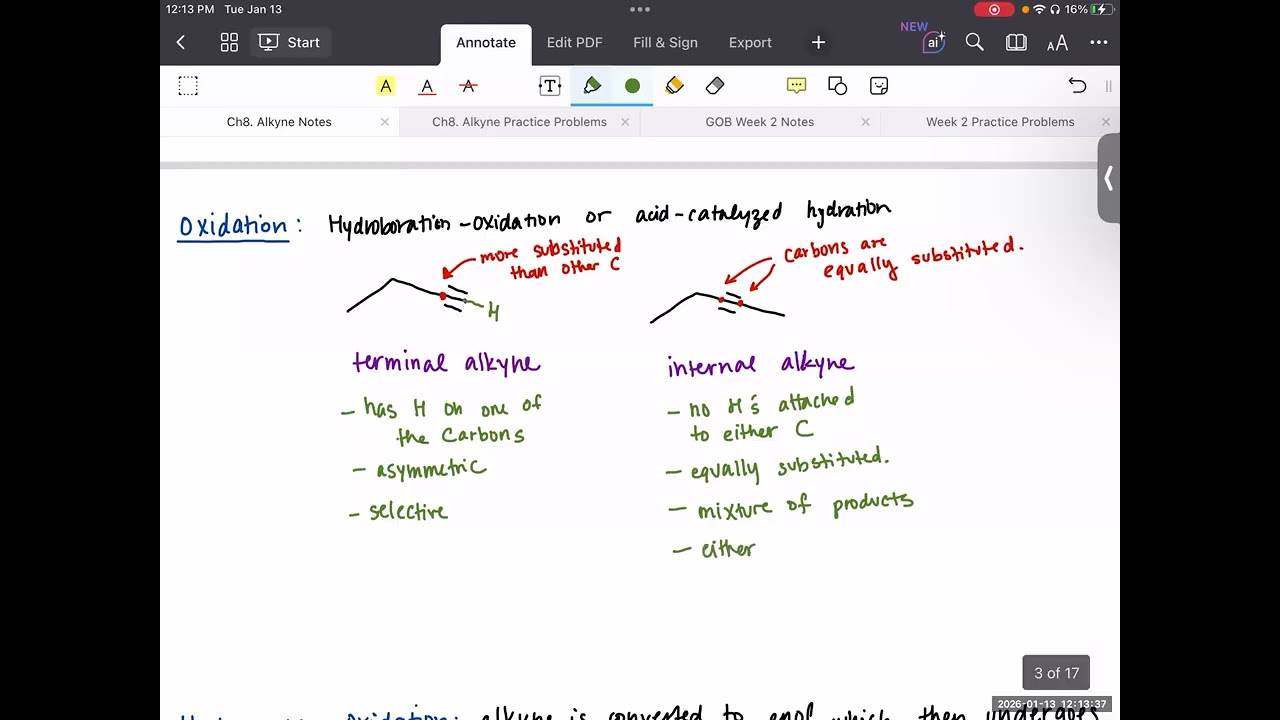 12:13 PM Tue Jan 13
16%
Start
Annotate
Edit PDF
Fill & Sign
Export
NEW
ai
AA
A A A T
Ch8. Alkyne Notes
Ch8. Alkyne Practice Problems
GOB Week 2 Notes
Week 2 Practice Problems
Oxidation: Hydroboration-oxidation or acid-catalyzed hydration
more substituted
than other C
carbons are
equally substituted.
H
terminal alkyne
- has H on one of
the carbons
- asymmetric
- selective
internal alkyne
- no H's attached
to either C
- equally substituted.
- mixture of products
- either
3 of 17
2026-01-13 12:13:37
Oxidation: alkyne is converted to enol which then undergoes